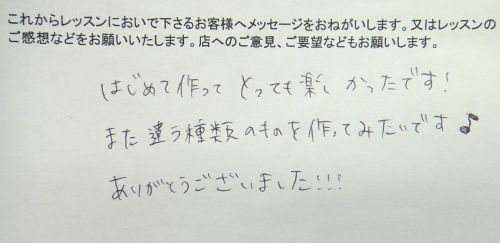 これからレッスンにおいで下さるお客様へメッセージをおねがいします。又はレッスンの
ご感想などをお願いいたします。店へのご意見、ご要望などもお願いします。
はじめて作って とっても楽しかったです!
また違う種類のものを作ってみたいです♪
ありがとうございました!!!